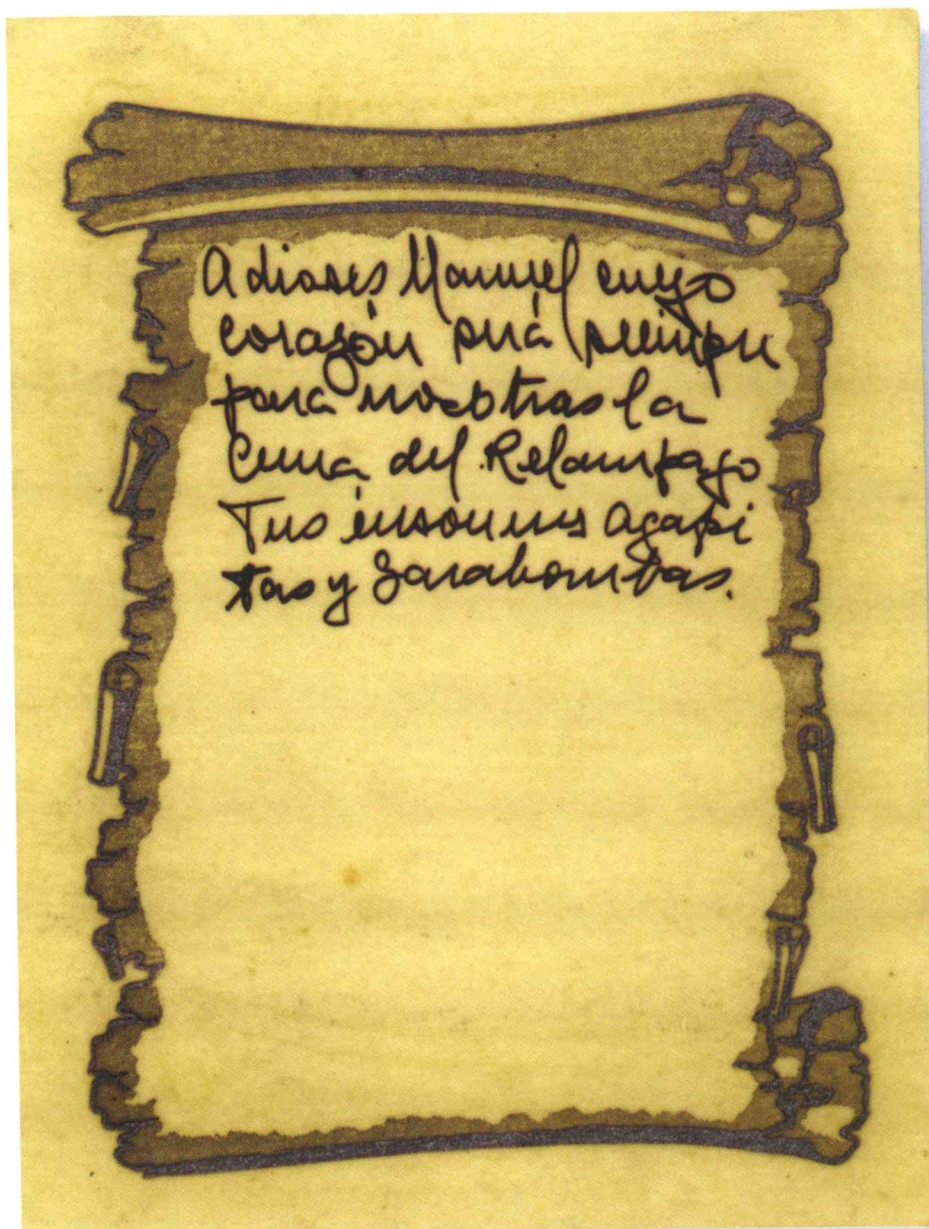 Adioses Manuel cuyo
corazón será siempre
para nosotras la
Cuna del Relampago
Tus insomnes agapi
tas y zarabombas.